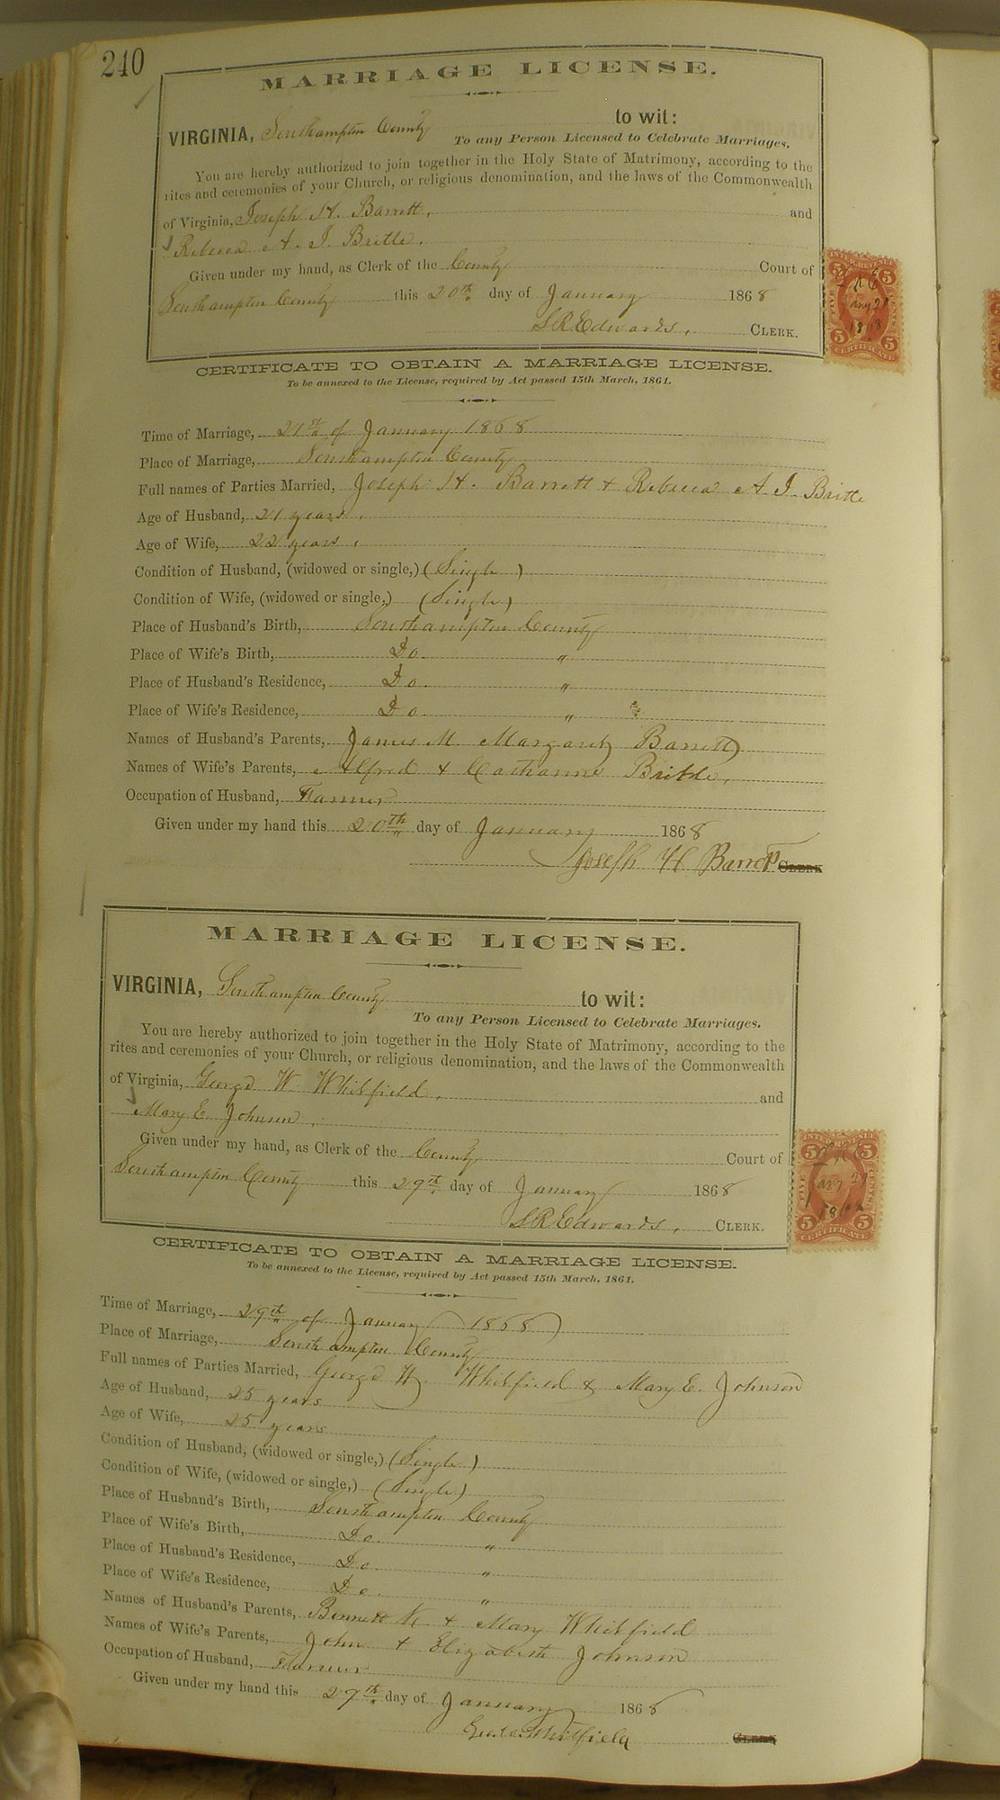 240
MARRIAGE LICENSE.
VIRGINIA, Southampton County to wit:
To any Person Licensed to Celebrate Marriages.
You are hereby authorized to join together in the Holy State of Matrimony, according to the
rites and ceremonies of your Church, or religious denomination, and the laws of the Commonwealth
of Virginia, Joseph H. Barrett, and
Rebecca A. J. Britle.
Given under my hand, as Clerk of the County Court of
Southampton County this 20th day of January 1868
L R Edwards, CLERK.
CERTIFICATE TO OBTAIN A MARRIAGE LICENSE.
To be annexed to the License, required by Act passed 15th March, 1861.
Time of Marriage, 21st of January 1868
Place of Marriage, Southampton County
Full names of Parties Married, Joseph H. Barrett & Rebecca A. J. Britle
Age of Husband, 21 years.
Age of Wife, 22 years.
Condition of Husband, (widowed or single,) (Single)
Condition of Wife, (widowed or single,) (Single)
Place of Husband's Birth, Southampton County
Place of Wife's Birth, Do. "
Place of Husband's Residence, Do. "
Place of Wife's Residence, Do. "
Names of Husband's Parents, James M. Margaret Barrett
Names of Wife's Parents, Alfred & Catharine Britle,
Occupation of Husband, Farmer
Given under my hand this 20th day of January 1868
Joseph H Barrett CLERK
MARRIAGE LICENSE.
VIRGINIA, Southampton County to wit:
To any Person Licensed to Celebrate Marriages.
You are hereby authorized to join together in the Holy State of Matrimony, according to the
rites and ceremonies of your Church, or religious denomination, and the laws of the Commonwealth
of Virginia, George W. Whitfield, and
Mary E. Johnson,
Given under my hand, as Clerk of the County Court of
Southampton County this 29th day of January 1868
L R Edwards, CLERK.
CERTIFICATE TO OBTAIN A MARRIAGE LICENSE.
To be annexed to the License, required by Act passed 15th March, 1861.
Time of Marriage, 29th of January 1868
Place of Marriage, Southampton County
Full names of Parties Married, George W. Whitfield & Mary E. Johnson
Age of Husband, 25 years
Age of Wife, 25 years
Condition of Husband, (widowed or single,) (Single)
Condition of Wife, (widowed or single,) (Single)
Place of Husband's Birth, Southampton County
Place of Wife's Birth, Do. "
Place of Husband's Residence, Do. "
Place of Wife's Residence, Do. "
Names of Husband's Parents, Bennett & Mary Whitfield
Names of Wife's Parents, John & Elizabeth Johnson
Occupation of Husband, Farmer
Given under my hand this 29th day of January 1868
Whitfield CLERK